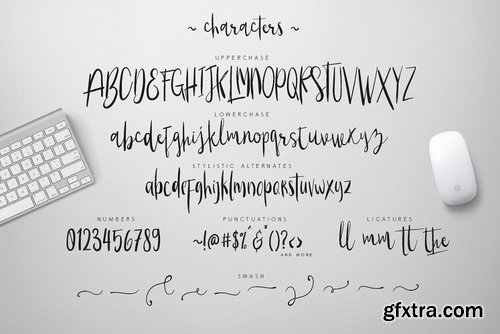 ~ characters ~
UPPERCHASE
ABCDEFGHIJKLMNOPQRSTUVWXYZ
LOWERCHASE
abcdefghijklmnopqrstuvwxyz
STYLISTIC ALTERNATES
abcdefghijklmnopqrstuvwxyz
NUMBERS PUNCTUATIONS LIGATURES
0123456789 ~!@#$%^&*()?<> ll mm tt the
AND MORE
SWASH
gfxtra.com